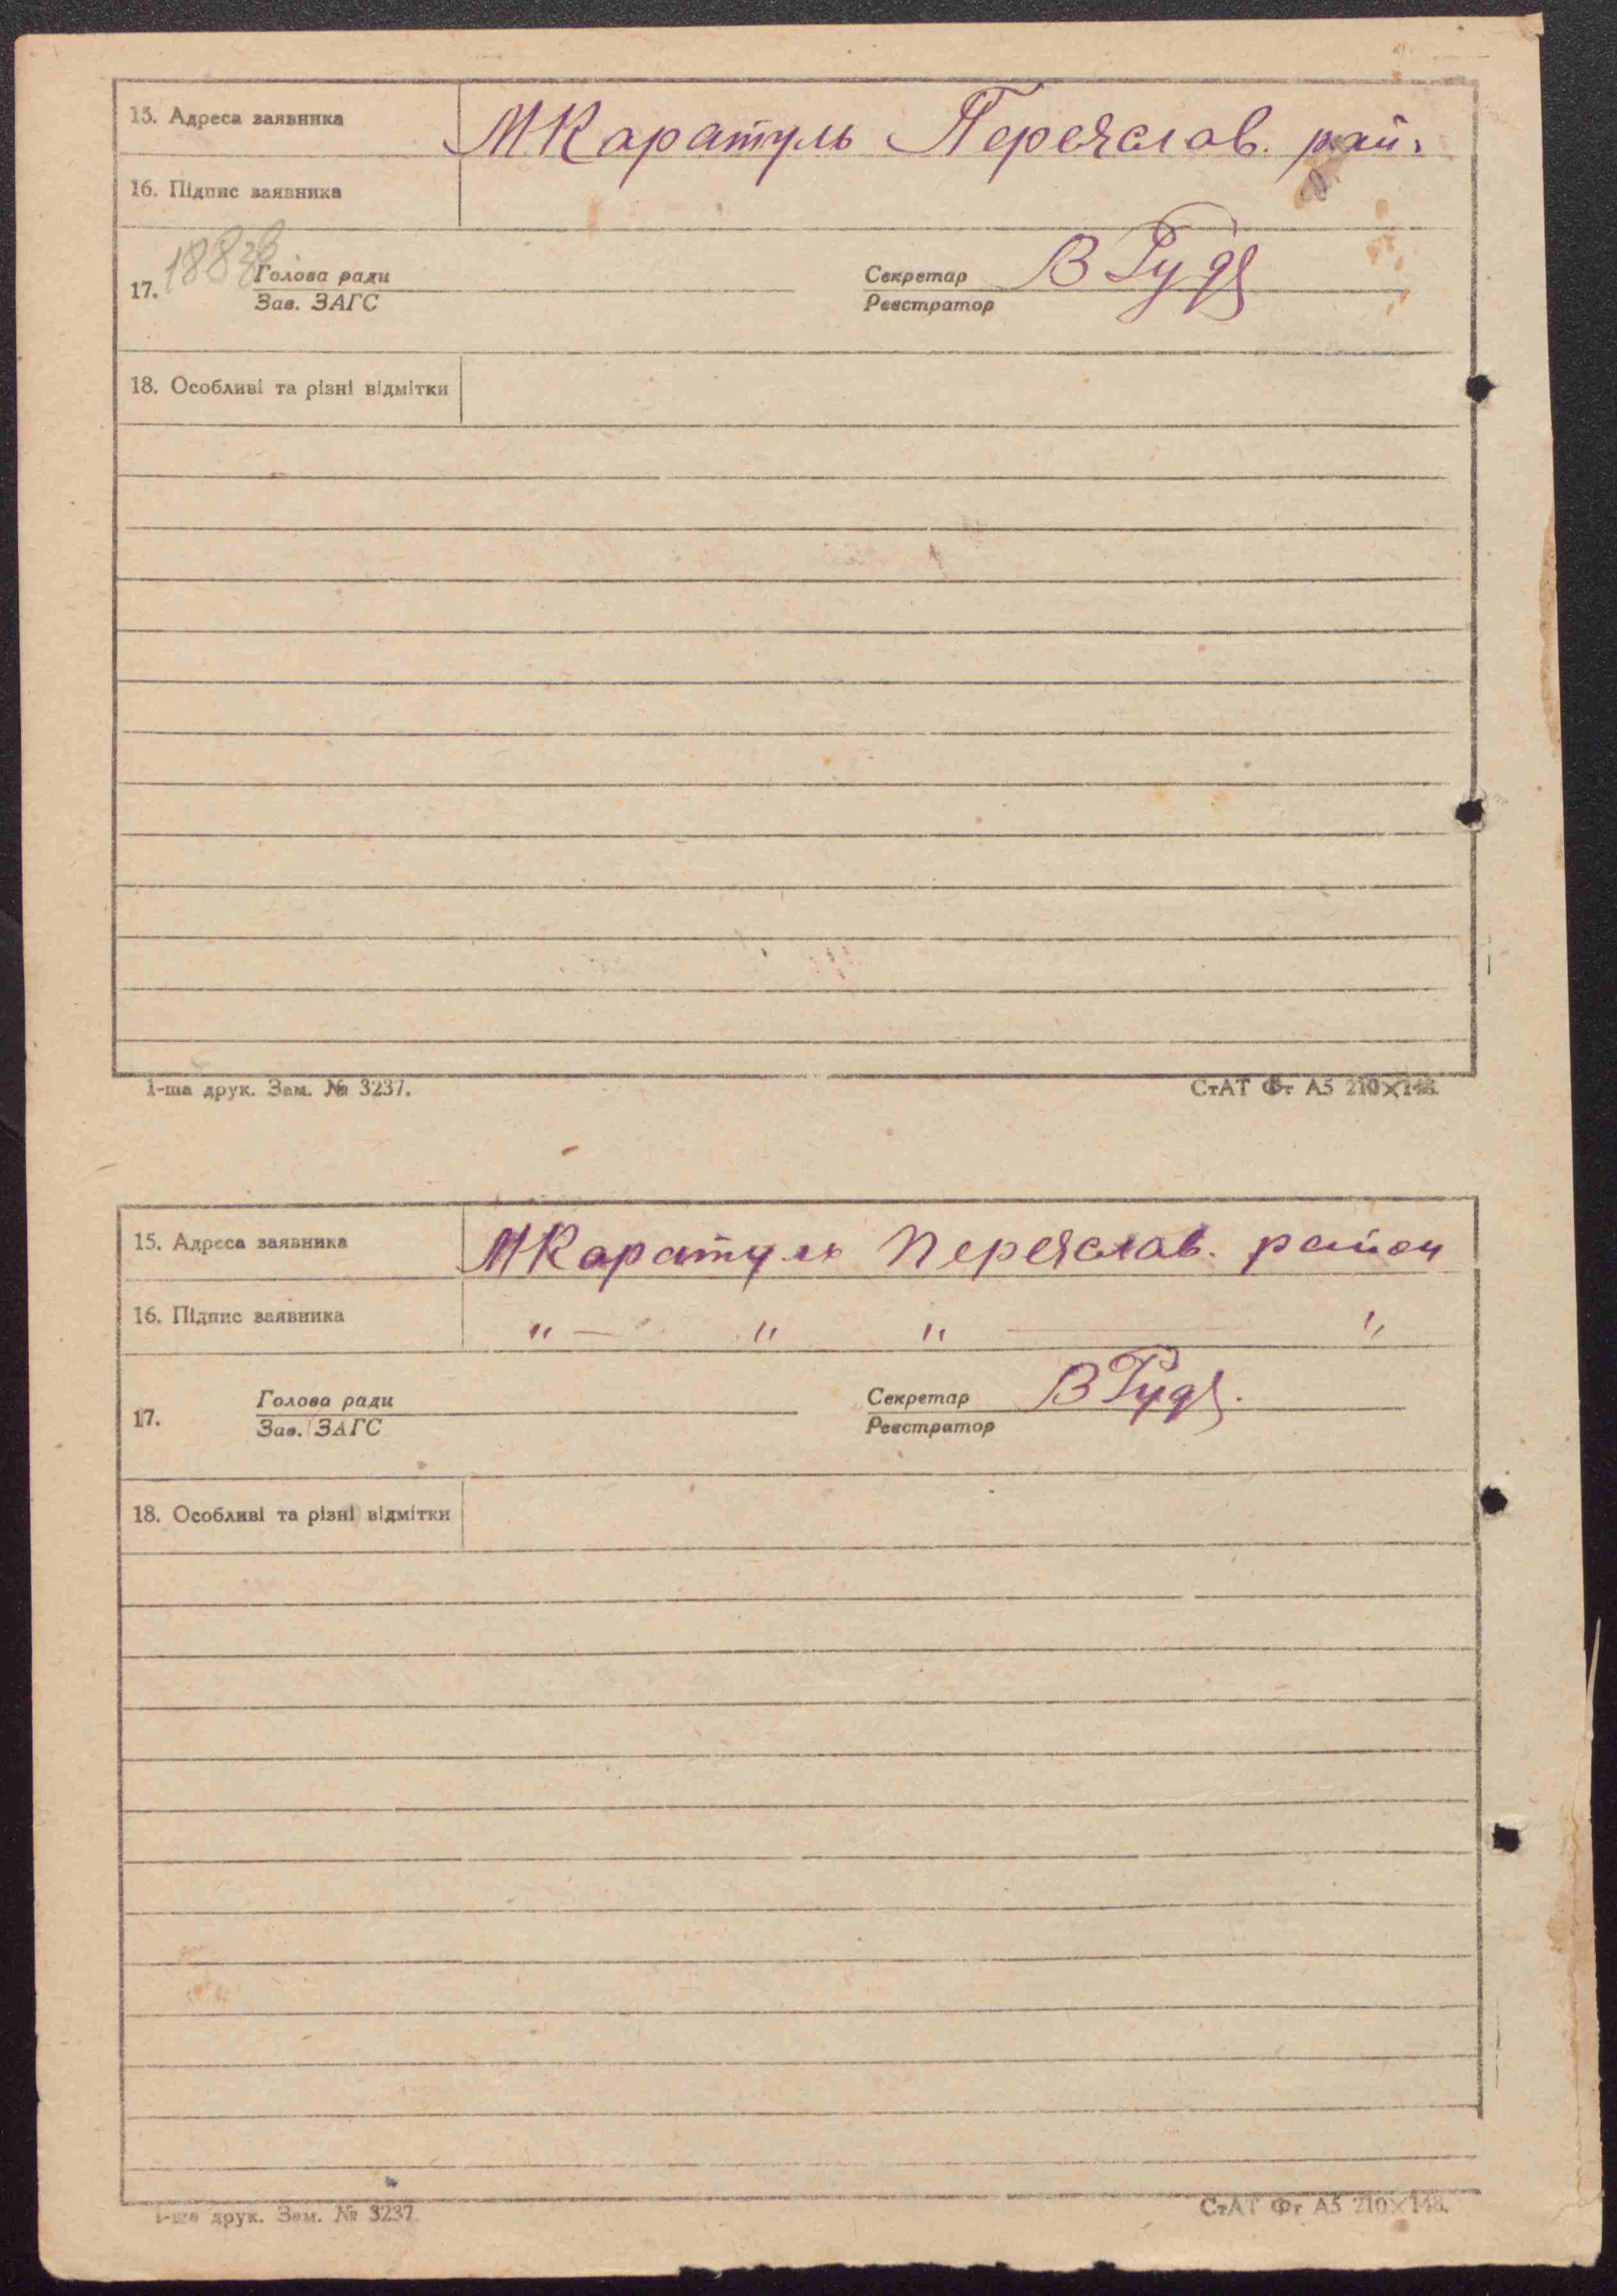 15. Адреса заявника МКаратуль Переяслав. рай.
16. Підпис заявника
Голова ради Секретар В Руд
17. Зав. ЗАГС Реєстратор
18. Особливі та різні відмітки
1-ша друк. Зам. № 3237. СтАТ Фт А5 210×148.
15. Адреса заявника МКаратуль Переяслав. район
16. Підпис заявника „ — „ „ — „
Голова ради Секретар В Руд
17. Зав. ЗАГС Реєстратор
18. Особливі та різні відмітки
1-ша друк. Зам. № 3237. СтАТ Фт А5 210×148.